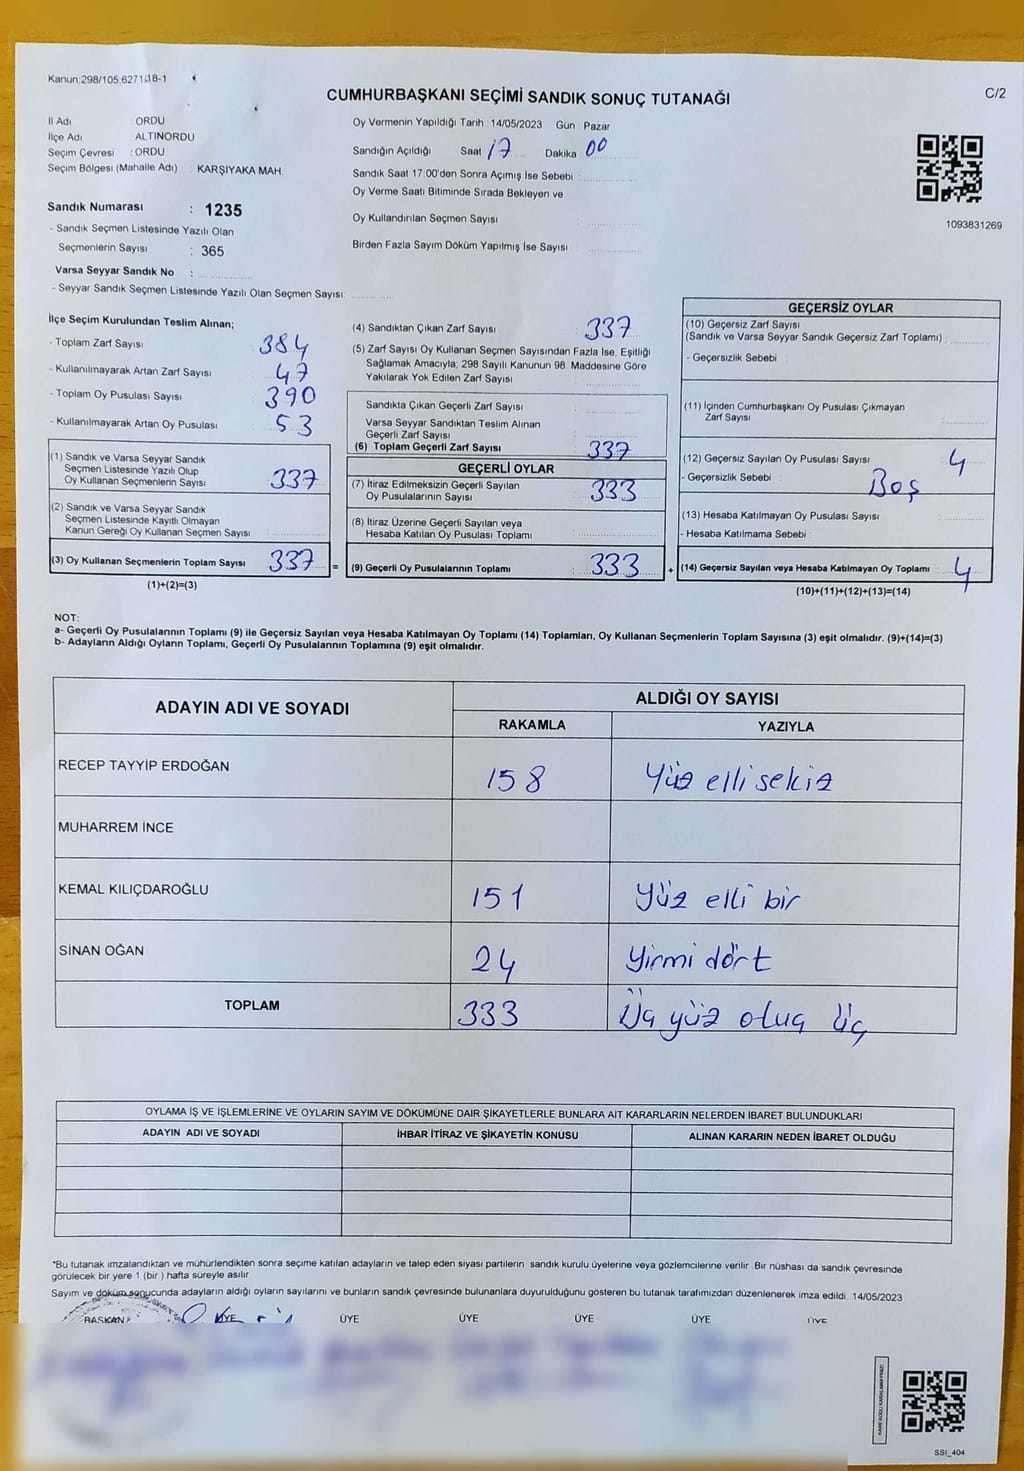 Kanun:298/105,6271/18-1
C/2
CUMHURBAŞKANI SEÇİMİ SANDIK SONUÇ TUTANAĞI
İl Adı : ORDU
İlçe Adı : ALTINORDU
Seçim Çevresi : ORDU
Seçim Bölgesi (Mahalle Adı) : KARŞIYAKA MAH.
Sandık Numarası : 1235
- Sandık Seçmen Listesinde Yazılı Olan
Seçmenlerin Sayısı : 365
Varsa Seyyar Sandık No :
- Seyyar Sandık Seçmen Listesinde Yazılı Olan Seçmen Sayısı:
Oy Vermenin Yapıldığı Tarih : 14/05/2023 Gün Pazar
Sandığın Açıldığı Saat 17 Dakika 00
Sandık Saat 17:00'den Sonra Açımış İse Sebebi :
Oy Verme Saati Bitiminde Sırada Bekleyen ve
Oy Kullandırılan Seçmen Sayısı :
Birden Fazla Sayım Döküm Yapılmış İse Sayısı :
1093831269
İlçe Seçim Kurulundan Teslim Alınan;
- Toplam Zarf Sayısı : 384
- Kullanılmayarak Artan Zarf Sayısı : 47
- Toplam Oy Pusulası Sayısı : 390
- Kullanılmayarak Artan Oy Pusulası : 53
(1) Sandık ve Varsa Seyyar Sandık
Seçmen Listesinde Yazılı Olup
Oy Kullanan Seçmenlerin Sayısı : 337
(2) Sandık ve Varsa Seyyar Sandık
Seçmen Listesinde Kayıtlı Olmayan
Kanun Gereği Oy Kullanan Seçmen Sayısı :
(3) Oy Kullanan Seçmenlerin Toplam Sayısı : 337 =
(1)+(2)=(3)
(4) Sandıktan Çıkan Zarf Sayısı : 337
(5) Zarf Sayısı Oy Kullanan Seçmen Sayısından Fazla İse, Eşitliği
Sağlamak Amacıyla; 298 Sayılı Kanunun 98. Maddesine Göre
Yakılarak Yok Edilen Zarf Sayısı :
Sandıkta Çıkan Geçerli Zarf Sayısı :
Varsa Seyyar Sandıktan Teslim Alınan
Geçerli Zarf Sayısı :
(6) Toplam Geçerli Zarf Sayısı : 337
GEÇERLİ OYLAR
(7) İtiraz Edilmeksizin Geçerli Sayılan
Oy Pusulalarının Sayısı : 333
(8) İtiraz Üzerine Geçerli Sayılan veya
Hesaba Katılan Oy Pusulası Toplamı :
(9) Geçerli Oy Pusulalarının Toplamı : 333 +
GEÇERSİZ OYLAR
(10) Geçersiz Zarf Sayısı
(Sandık ve Varsa Seyyar Sandık Geçersiz Zarf Toplamı) :
- Geçersizlik Sebebi :
(11) İçinden Cumhurbaşkanı Oy Pusulası Çıkmayan
Zarf Sayısı :
(12) Geçersiz Sayılan Oy Pusulası Sayısı : 4
- Geçersizlik Sebebi : Boş
(13) Hesaba Katılmayan Oy Pusulası Sayısı :
- Hesaba Katılmama Sebebi :
(14) Geçersiz Sayılan veya Hesaba Katılmayan Oy Toplamı : 4
(10)+(11)+(12)+(13)=(14)
NOT:
a- Geçerli Oy Pusulalarının Toplamı (9) ile Geçersiz Sayılan veya Hesaba Katılmayan Oy Toplamı (14) Toplamları, Oy Kullanan Seçmenlerin Toplam Sayısına (3) eşit olmalıdır. (9)+(14)=(3)
b- Adayların Aldığı Oyların Toplamı, Geçerli Oy Pusulalarının Toplamına (9) eşit olmalıdır.
ADAYIN ADI VE SOYADI
ALDIĞI OY SAYISI
RAKAMLA YAZIYLA
RECEP TAYYİP ERDOĞAN 158 Yüz elli sekiz
MUHARREM İNCE
KEMAL KILIÇDAROĞLU 151 Yüz elli bir
SİNAN OĞAN 24 Yirmi dört
TOPLAM 333 Üç yüz otuz üç
OYLAMA İŞ VE İŞLEMLERİNE VE OYLARIN SAYIM VE DÖKÜMÜNE DAİR ŞİKAYETLERLE BUNLARA AİT KARARLARIN NELERDEN İBARET BULUNDUKLARI
ADAYIN ADI VE SOYADI İHBAR İTİRAZ VE ŞİKAYETİN KONUSU ALINAN KARARIN NEDEN İBARET OLDUĞU
*Bu tutanak imzalandıktan ve mühürlendikten sonra seçime katılan adayların ve talep eden siyasi partilerin sandık kurulu üyelerine veya gözlemcilerine verilir. Bir nüshası da sandık çevresinde
görülecek bir yere 1 (bir ) hafta süreyle asılır.
Sayım ve döküm sonucunda adayların aldığı oyların sayılarını ve bunların sandık çevresinde bulunanlara duyurulduğunu gösteren bu tutanak tarafımızdan düzenlenerek imza edildi. 14/05/2023
BAŞKAN ÜYE ÜYE ÜYE ÜYE ÜYE ÜYE
SSI_404